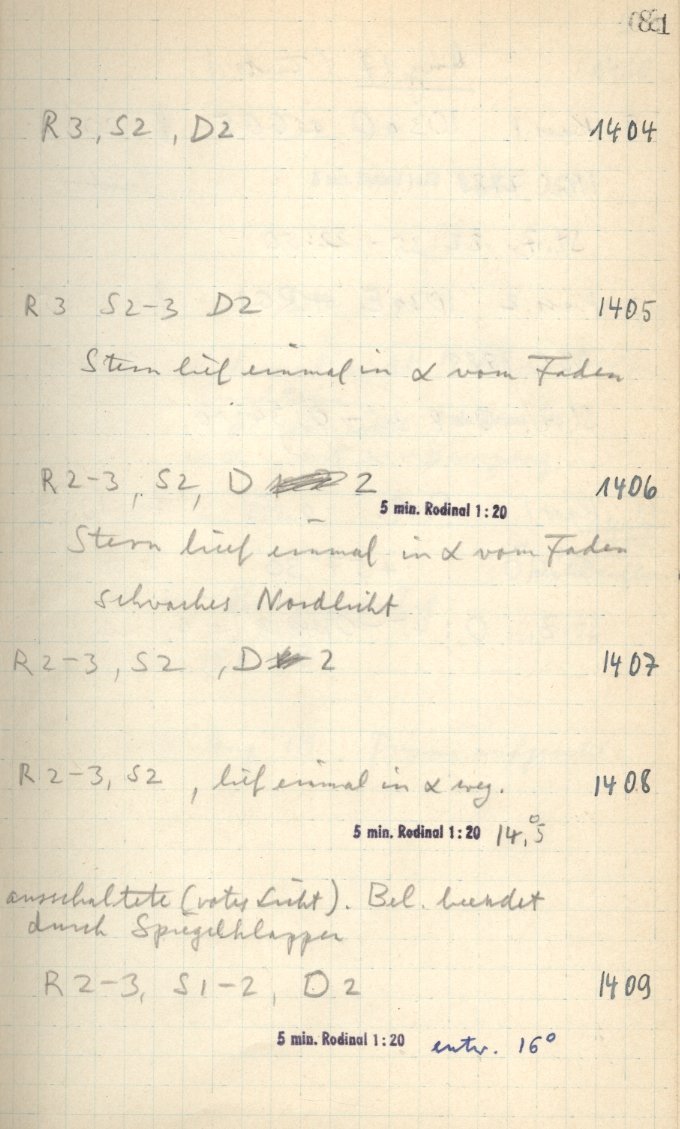 81
R 3, S2, D2 1404
R 3 S2-3 D2 1405
Stern lief einmal in α vom Faden
R 2-3, S2, D 2 1406
5 min. Rodinal 1:20
Stern lief einmal in α vom Faden
schwaches Nordlicht
R 2-3, S2, D 2 1407
R 2-3, S2, lief einmal in α weg. 1408
5 min. Rodinal 1:20 14,°5
ausschaltete (rotes Licht). Bel. beendet
durch Spiegelklappen
R 2-3, S1-2, D2 1409
5 min. Rodinal 1:20 entw. 16°